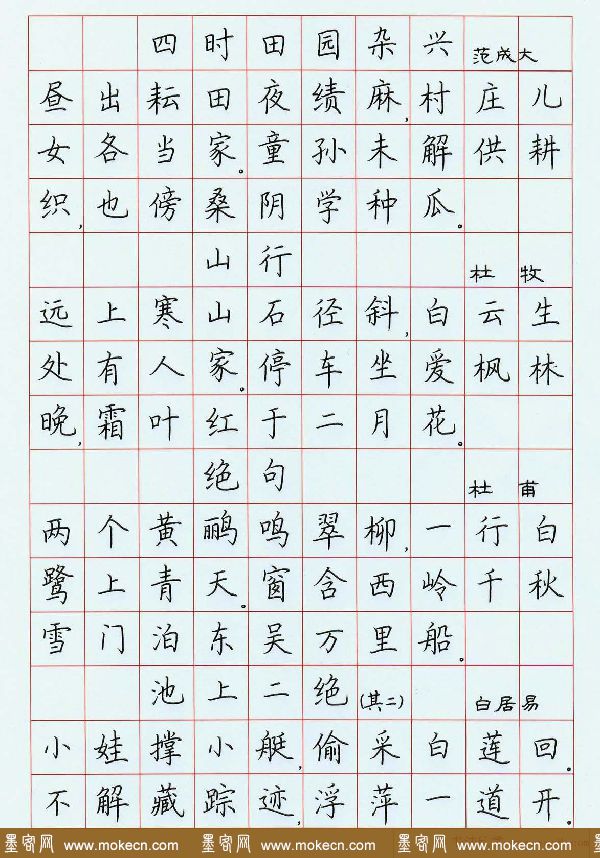 四时田园杂兴 范成大
昼出耘田夜绩麻,村庄儿
女各当家。童孙未解供耕
织,也傍桑阴学种瓜。
山行 杜牧
远上寒山石径斜,白云生
处有人家。停车坐爱枫林
晚,霜叶红于二月花。
绝句 杜甫
两个黄鹂鸣翠柳,一行白
鹭上青天。窗含西岭千秋
雪门泊东吴万里船。
池上二绝(其二) 白居易
小娃撑小艇,偷采白莲回。
不解藏踪迹,浮萍一道开。
墨客网 www.mokecn.com 墨客网 www.mokecn.com 墨客网 www.mokecn.com